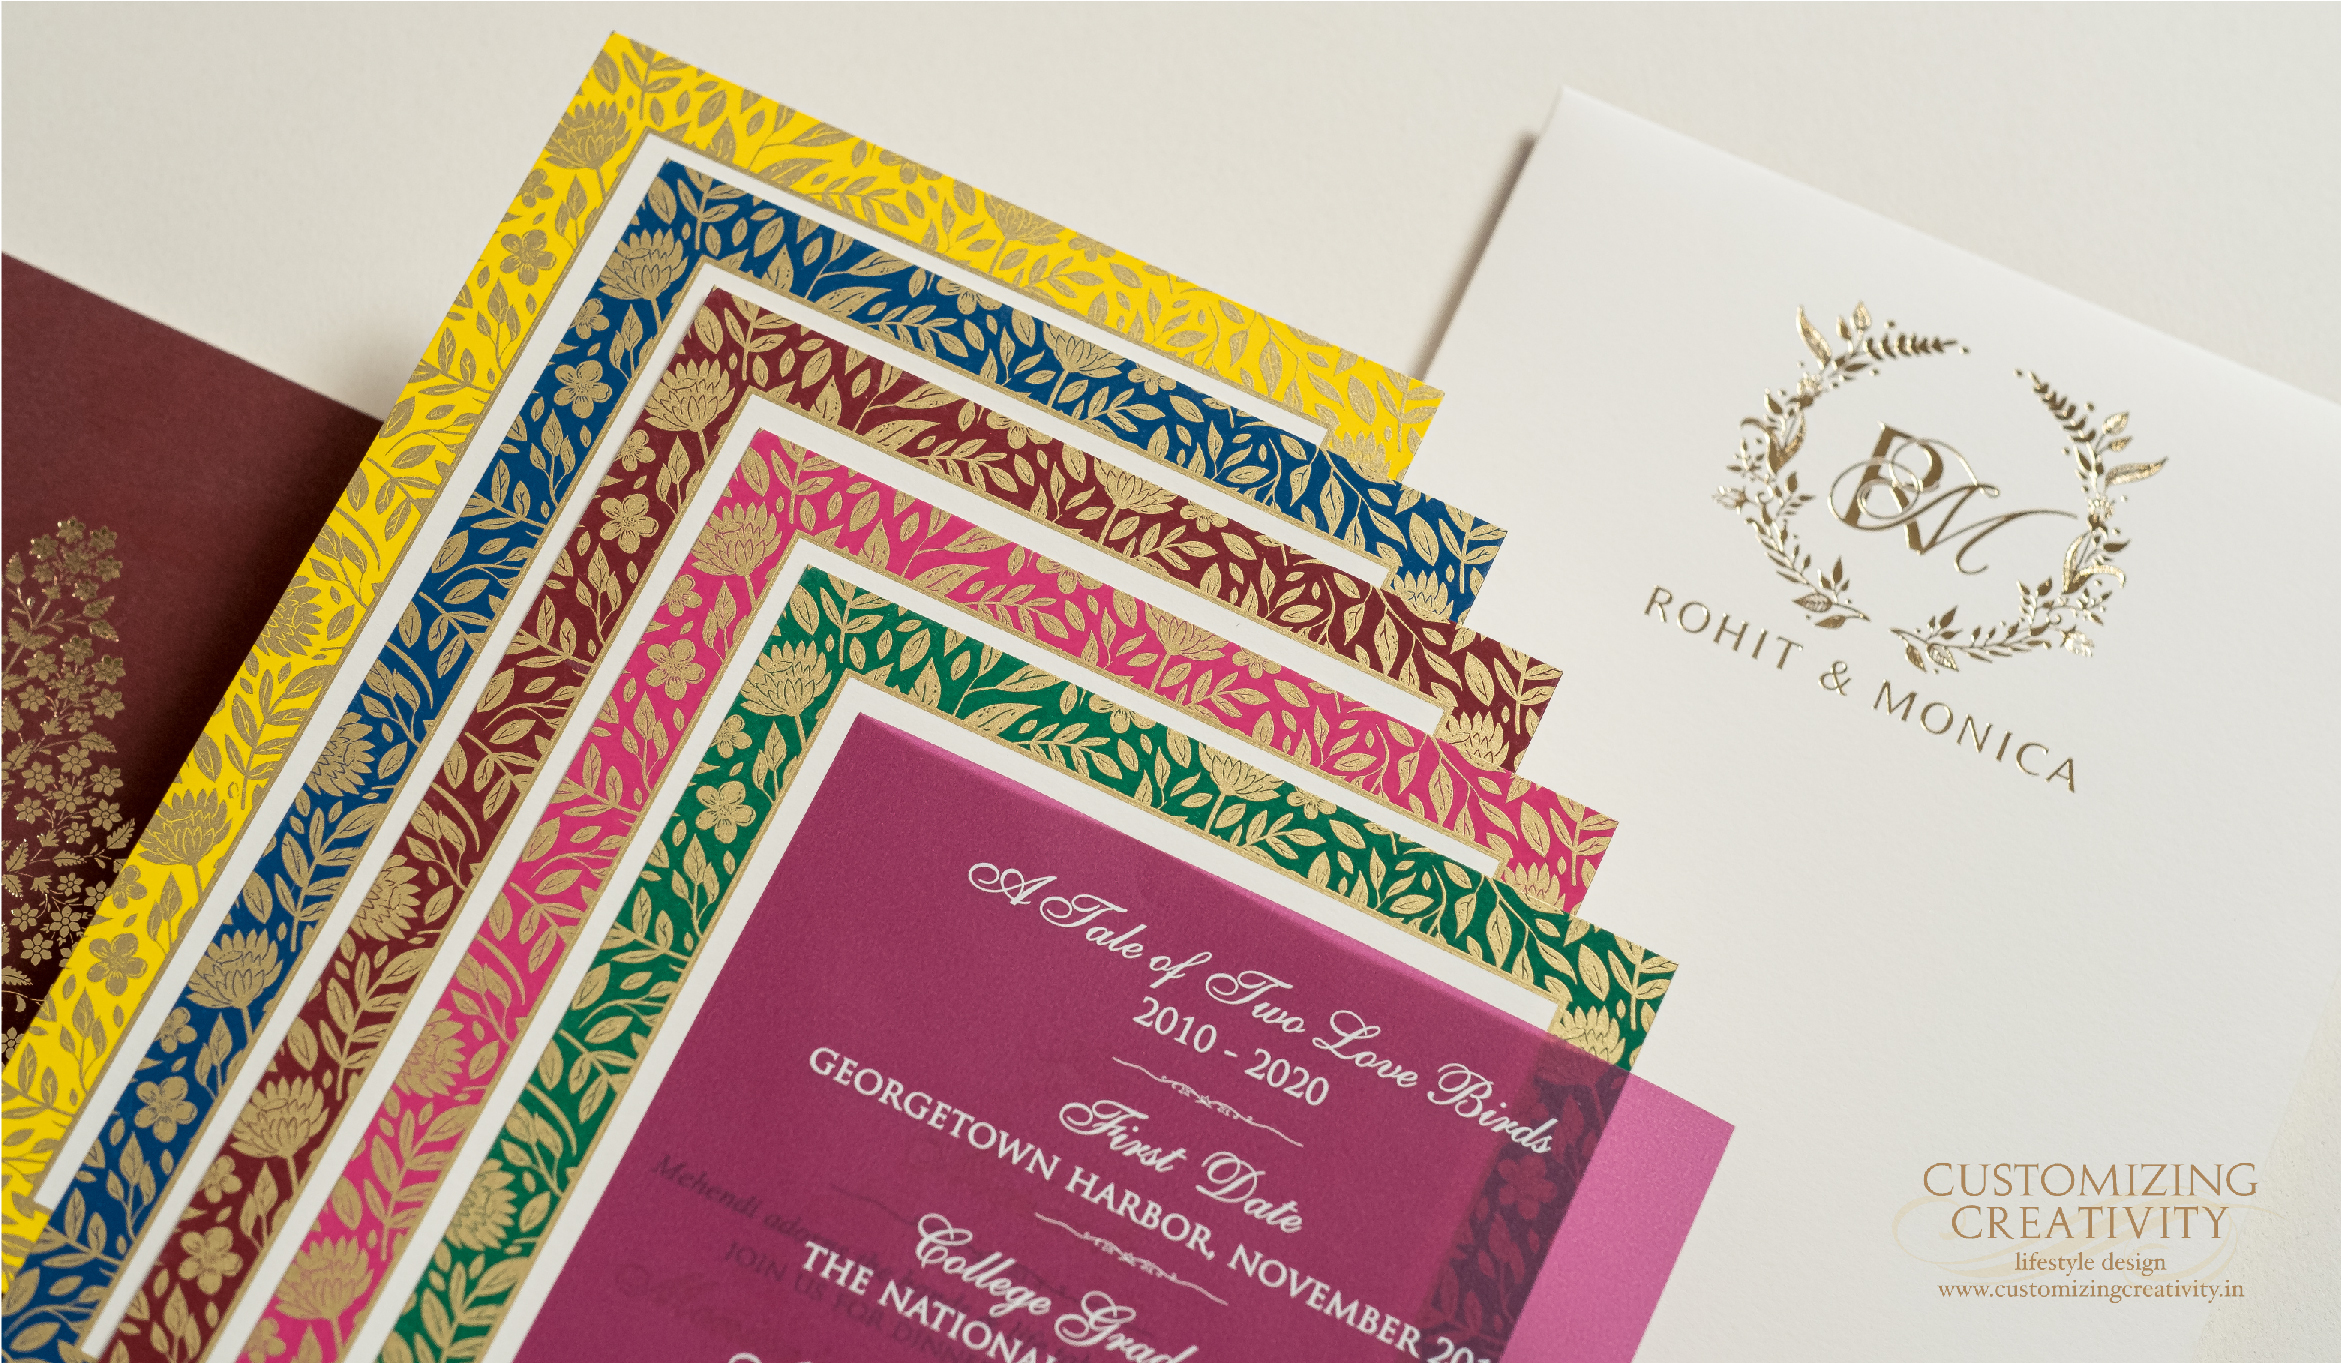 RM
ROHIT & MONICA
A Tale of Two Love Birds
2010 - 2020
First Date
GEORGETOWN HARBOR, NOVEMBER
College
THE
Mehendi
JOIN US FOR
CUSTOMIZING
CREATIVITY
lifestyle design
www.customizingcreativity.in